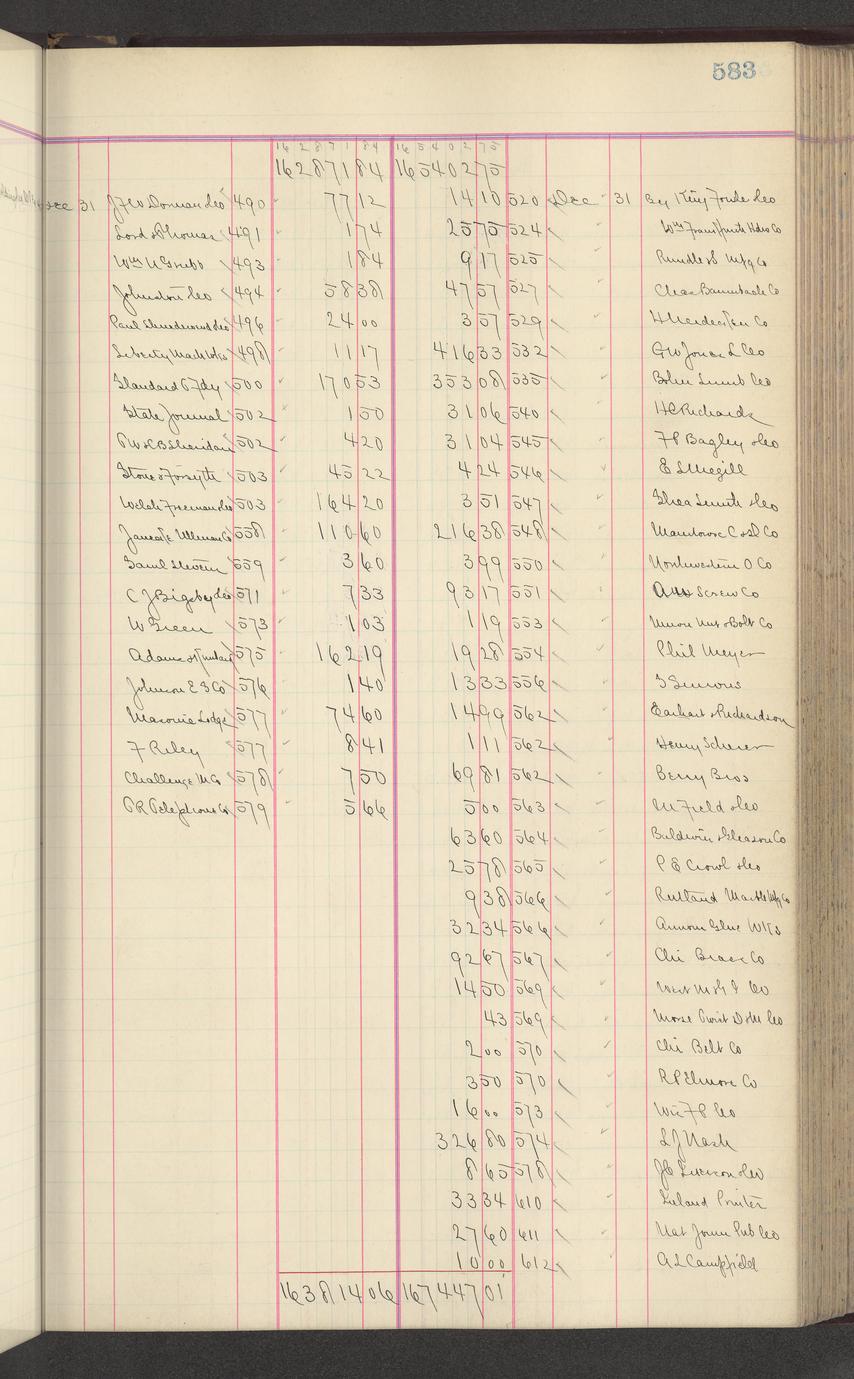 583
16 2 8 7 1 84 16 5 4 0 2 75
162871 84 165402 75
Dec 31 490 77 12 14 10 520 Dec 31 By King Co
Lord & Thomas 491 1 74 25 75 524
Wm 493 1 84 9 17 525 Mfg Co
Johnston Co 494 58 38 47 57 527 Chas Co
Paul 496 24 00 3 57 529 Co
Liberty Mach Wks 498 11 17 416 33 532 G W Jones L Co
Standard Fdy 500 170 53 353 08 535 Lumb Co
State Journal 502 1 50 31 06 540 H C Richards
Sheridan 502 4 20 31 04 545 F P Bagley & Co
Stone & Forsyth 503 45 22 4 24 546 E S Megill
Welsh Freeman 503 164 20 3 51 547 Shea Smith & Co
558 110 60 216 38 548 Co
Saml Stevens 559 3 60 3 99 550 Northwestern O Co
C J Bigsby Co 571 7 33 93 17 551 Screw Co
W Green 573 1 03 1 19 553 Union Nut & Bolt Co
Adams & 575 162 19 19 28 554 Phil Meyer
Johnson E S Co 576 1 40 13 33 556
Masonic Lodge 577 74 60 14 99 562 Earhart & Richardson
F Riley 577 8 41 1 11 562 Henry Scherer
Challenge M Co 578 7 50 69 81 562 Berry Bros
Telephone Co 579 5 66 5 00 563 M Field & Co
63 60 564 Baldwin & Gleason Co
25 78 565 P E Crowl & Co
9 38 566 Rutland Marble Mfg Co
32 34 566 Armour Glue Wks
92 67 567 Chi Brass Co
14 50 569 West Co
43 569 Morse Twist D & M Co
2 00 570 Chi Belt Co
3 50 570 R P Elmore Co
16 00 573 Wis F P Co
326 80 574 L J Nash
8 65 578
33 34 610 Leland Printer
27 60 611 Nat Journ Pub Co
10 00 612 A L Campfield
163814 06 167447 01